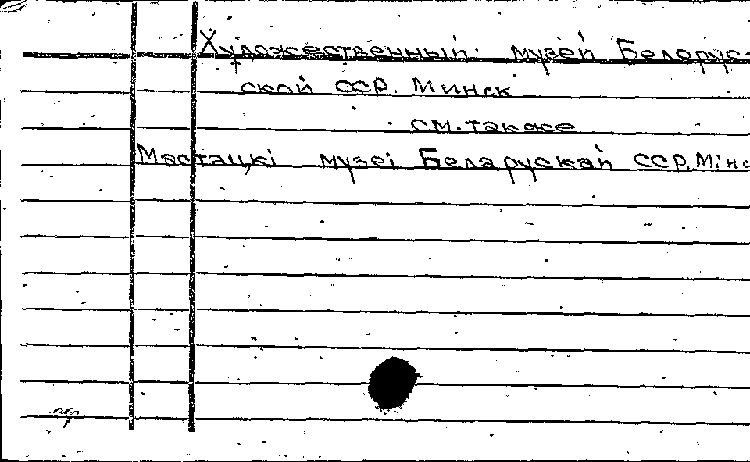 Художественный музей Белорус-
ской ССР. Минск
см. также
Мастацкі музеі Беларускай ССР, Мінс